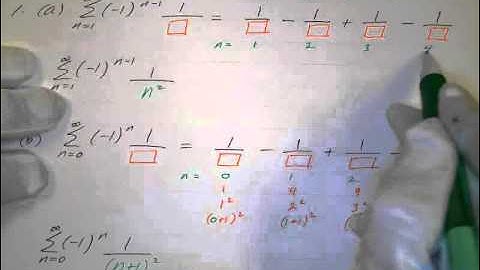 1. (a) ∞ Σ n=1 (-1)^(n-1) 1/□ = 1/□ - 1/□ + 1/□ - 1/□
n = 1 2 3 4
∞ Σ n=1 (-1)^(n-1) 1/n²
(b) ∞ Σ n=0 (-1)^n 1/□ = 1/□ - 1/□ + 1/□ -
n = 0 1 2
1 4 9
1² 2² 3²
(0+1)² (1+1)²
∞ Σ n=0 (-1)^n 1/(n+1)²